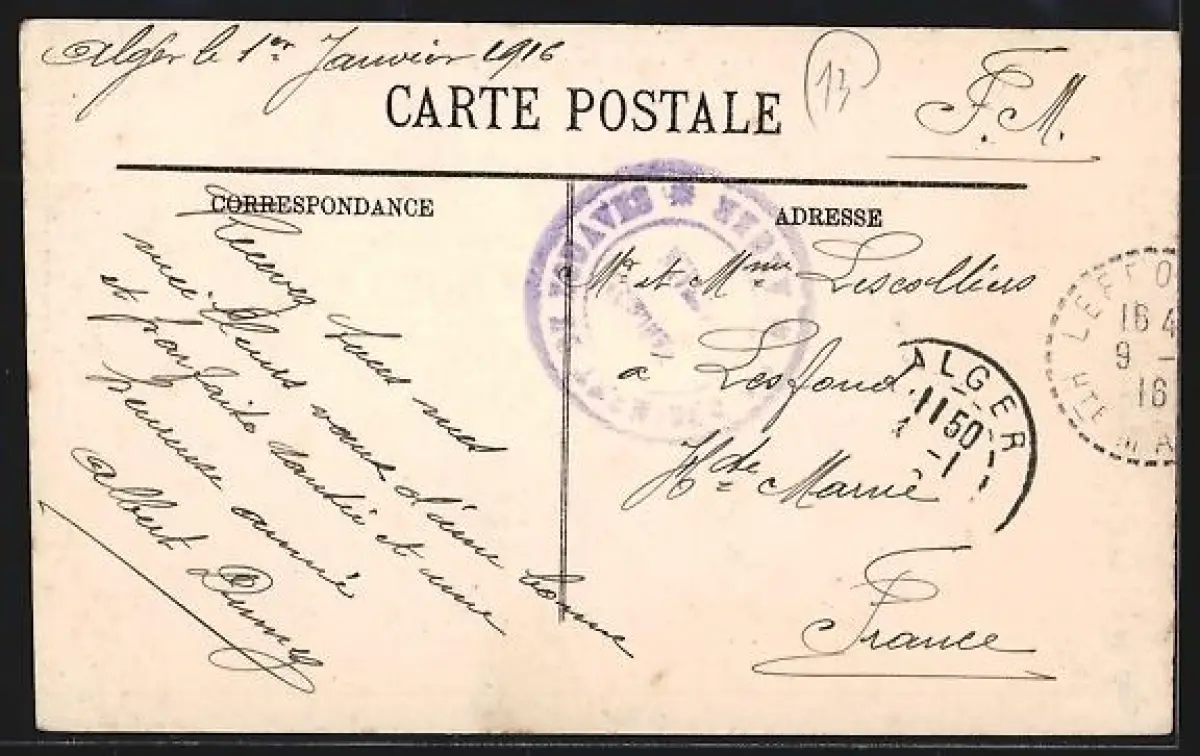 Alger le 1er Janvier 1916
13
F. M.
CARTE POSTALE
CORRESPONDANCE
Recevez tous mes
meilleurs vœux d'une bonne
et parfaite santée et une
heureuse année
Albert
ADRESSE
ZOUAVES *
Mr et Mme Lescolliers
à Leffond
Hte Marne
France
ALGER
11 50
1 - 1
LEFFO
16 4
9 -
16
HTE MA